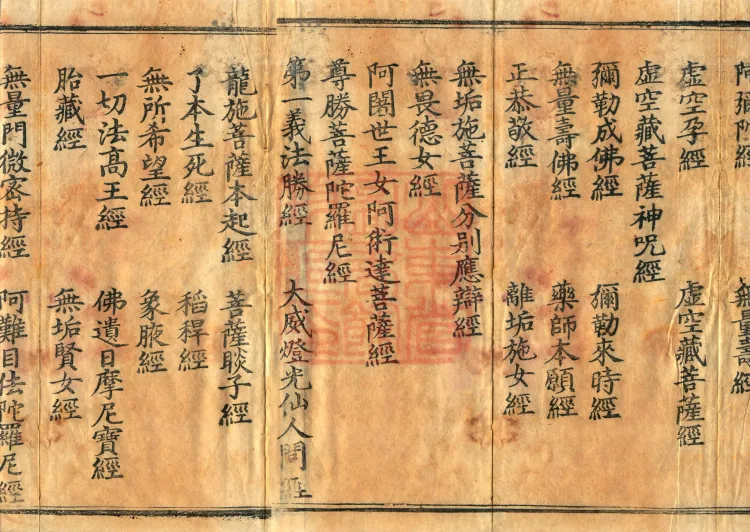 阿彌陀經 無量壽經
虛空孕經 虛空藏菩薩經
虛空藏菩薩神呪經
彌勒成佛經 彌勒來時經
無量壽佛經 藥師本願經
正恭敬經 離垢施女經
無垢施菩薩分别應辯經
無畏德女經
阿闍世王女阿術達菩薩經
尊勝菩薩陀羅尼經
第一義法勝經 大威燈光仙人問經
龍施菩薩本起經 菩薩睒子經
了本生死經 稻稈經
無所希望經 象腋經
一切法高王經 佛遺日摩尼寶經
胎藏經 無垢賢女經
無量門微密持經 阿難目佉陀羅尼經